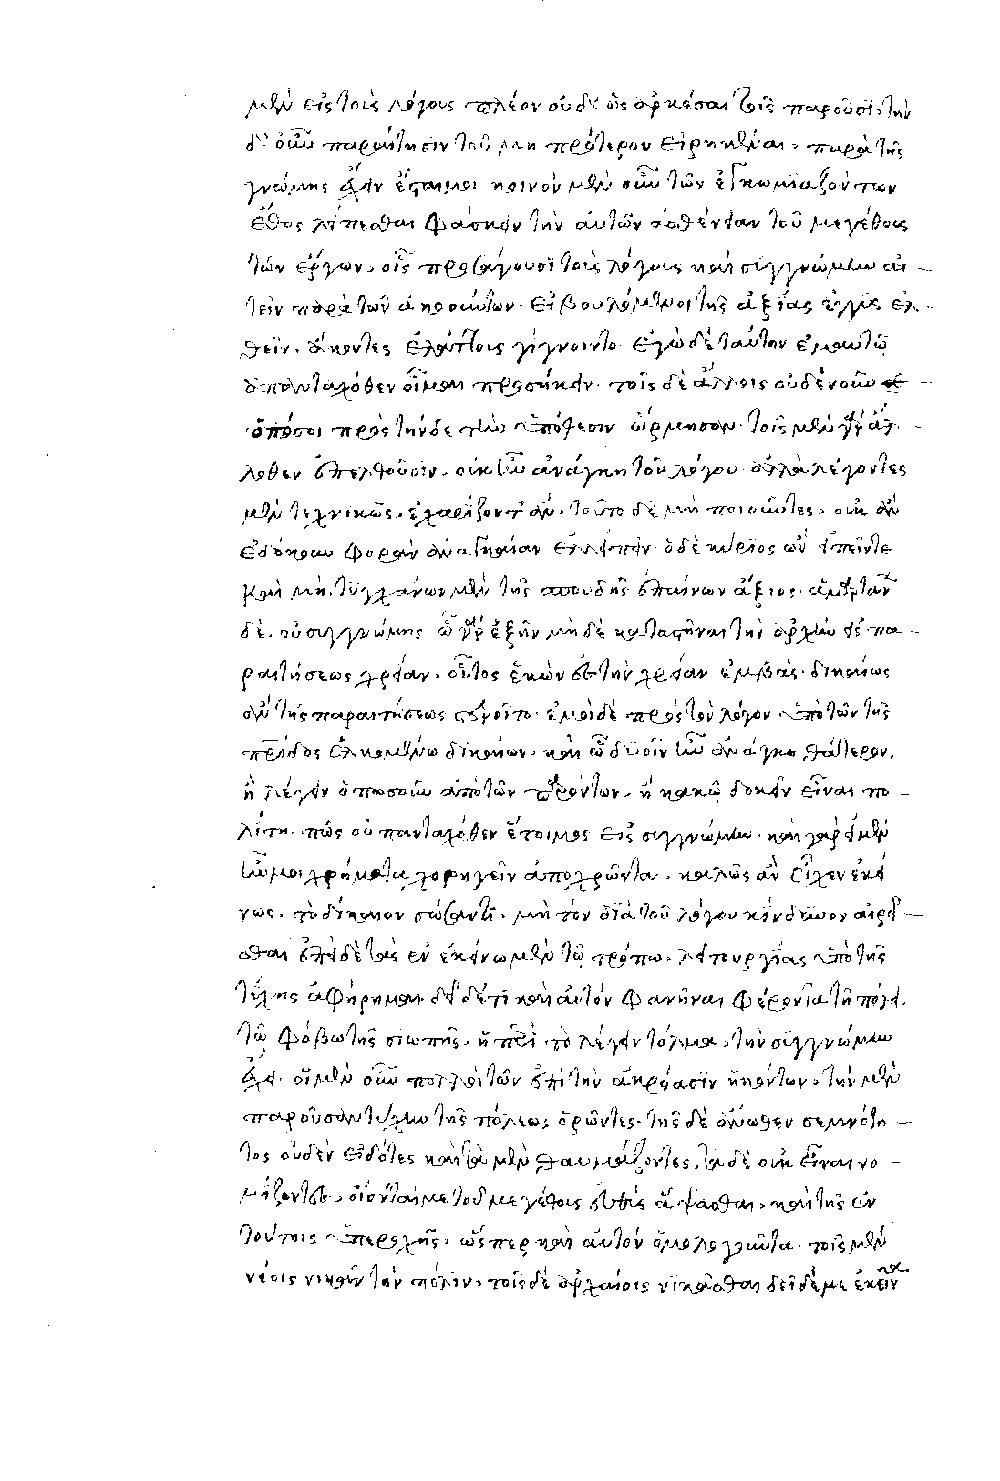 μὲν εἰς τοὺς λόγους πλέον οὐδ' ὡς ἀρκέσαι τοῖς παροῦσι· τὴν
δ' οὖν παραίτησιν τοῦ μὴ πρότερον εἰρηκέναι, παρὰ τῆς
γνώμης ἔχειν ἕτοιμοι κοινὸν μὲν οὖν τῶν ἐγκωμιαζόντων
ἔθος λείπεσθαι φάσκειν τὴν αὑτῶν τοῦ μεγέθους
τῶν ἔργων, οἷς προσάγουσι τοὺς λόγους καὶ συγγνώμην αἰ-
τεῖν παρὰ τῶν ἀκροατῶν· εἰ βουλόμενοι τῆς ἀξίας ἐγγὺς ἐλ-
θεῖν, ἄκοντες ἐλάττους γίγνοιντο· ἐγὼ δὲ ταύτην ἐμαυτῷ
πανταχόθεν οἶμαι προσήκειν· τοῖς δὲ ἄλλοις οὐδενοῦν
ὁπόσοι πρὸς τήνδε τὴν ὑπόθεσιν ὥρμησαν· τοῖς μὲν γὰρ ἄλ-
λοθεν ἐπελθοῦσιν, οὐκ ἦν ἀνάγκη τοῦ λόγου· ἀλλὰ λέγοντες
μὲν τεχνικῶς, ἐχαρίζοντ' ἄν· τοῦτο δὲ μὴ ποιοῦντες, οὐκ ἂν
ἐδόκουν φορὰν ἀναγκαίαν ἐλλείπειν· ὁ δὲ κύριος ὢν εἰπεῖν τε
καὶ μή, τυγχάνων μὲν τῆς σπουδῆς ἐπαίνων ἄξιος· ἁμαρτὼν
δέ, οὐ συγγνώμης ᾧ γὰρ ἐξῆν μηδὲ καταστῆναι τὴν ἀρχὴν εἰς πα-
ραιτήσεως χρείαν· οὗτος ἑκὼν εἰς τὴν χρείαν ἐμβάς, δικαίως
ἂν τῆς παραιτήσεως στεροῖτο· ἐμοὶ δὲ πρὸς τὸν λόγον ὑπὸ τῶν τῆς
πατρίδος ἑλκομένῳ δικαίων, καὶ ᾧ δυοῖν ἦν ἀνάγκη θάτερον,
ἢ λέγειν ὁπωσοῦν ἀπὸ τῶν παρόντων, ἢ κακῷ δοκεῖν εἶναι πο-
λίτῃ, πῶς οὐ πανταχόθεν ἕτοιμος εἰς συγγνώμην· καὶ γὰρ εἰ μὲν
ἦν μοι χρήματα χορηγεῖν ἀποχρῶντα, καλῶς ἂν εἶχεν ἐκεί-
νως, τὸ δίκαιον σώσαντι, μὴ τὸν διὰ τοῦ λόγου κίνδυνον αἱρεῖ-
σθαι ἐπεὶ δὲ τὰς ἐν ἐκείνῳ μὲν τῷ τρόπῳ, λειτουργίας ὑπὸ τῆς
τύχης ἀφῄρημαι· δεῖ δέ τι καὶ αὐτὸν φανῆναι φέροντα τῇ πόλει,
τῷ φόβῳ τῆς σιωπῆς, ἡ περὶ τὸ λέγειν τόλμα, τὴν συγγνώμην
ἔχει· οἱ μὲν οὖν πολλοὶ τῶν ἐπὶ τὴν ἀκρόασιν ἡκόντων, τὴν μὲν
παροῦσαν τύχην τῆς πόλεως ὁρῶντες, τῆς δὲ ἄνωθεν σεμνότη-
τος οὐδὲν εἰδότες καὶ τὰ μὲν θαυμάζοντες, τὰ δὲ οὐκ εἶναι νο-
μίζοντες, οἴονταί με τοῦ μεγέθους εὐθὺς ἅψασθαι, καὶ τῆς ἐν
τούτοις ὑπεροχῆς, ὥσπερ καὶ αὐτὸν ὁμολογοῦντα, τοῖς μὲν
νέοις νικᾶν τὴν πόλιν, τοῖς δὲ ἀρχαίοις νικᾶσθαι δεῖ δέ με